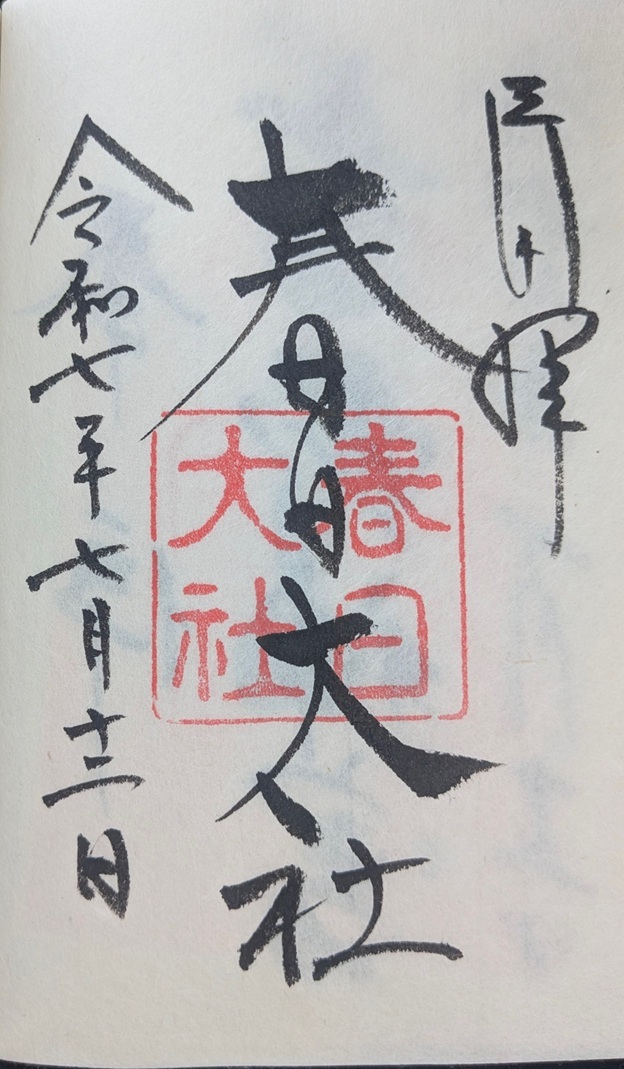 春日大社
令和七年七月十二日
春日
大社